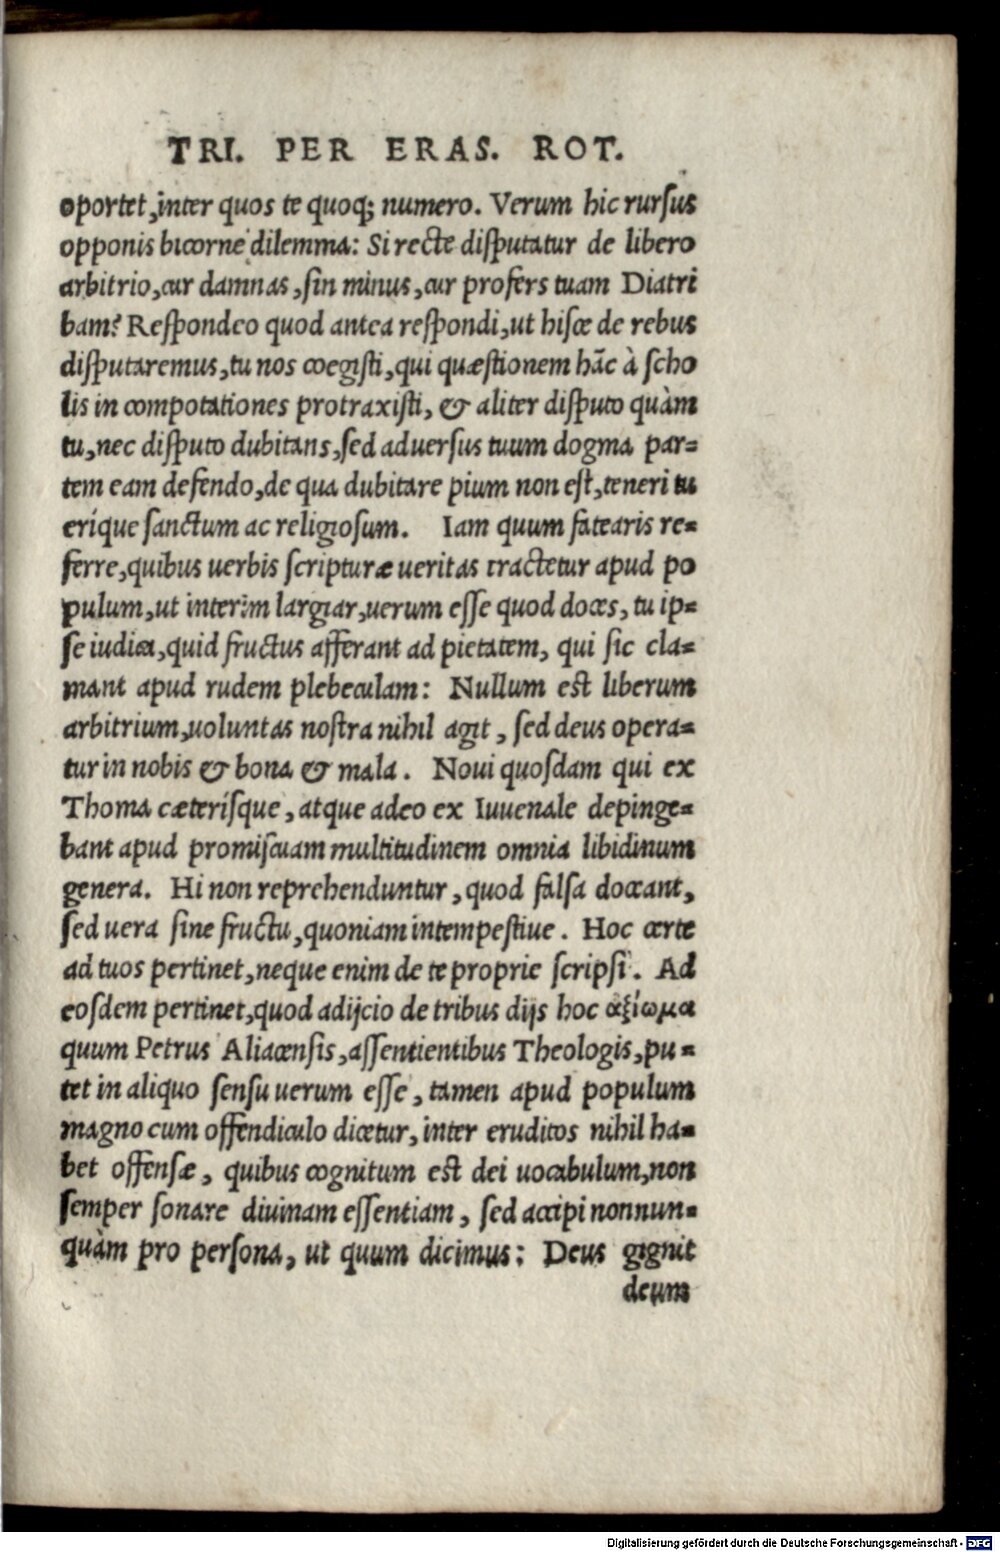 TRI. PER ERAS. ROT.
oportet, inter quos te quoq; numero. Verum hic rursus
opponis bicorne dilemma: Si recte disputatur de libero
arbitrio, cur damnas, sin minus, cur profers tuam Diatri
bam? Respondeo quod antea respondi, ut hisce de rebus
disputaremus, tu nos coegisti, qui quæstionem hãc à scho
lis in compotationes protraxisti, & aliter disputo quàm
tu, nec disputo dubitans, sed aduersus tuum dogma par-
tem eam defendo, de qua dubitare pium non est, teneri tu
eríque sanctum ac religiosum. Iam quum fatearis re-
ferre, quibus uerbis scripturæ ueritas tractetur apud po
pulum, ut interim largiar, uerum esse quod doces, tu ip-
se iudica, quid fructus afferant ad pietatem, qui sic cla-
mant apud rudem plebeculam: Nullum est liberum
arbitrium, uoluntas nostra nihil agit, sed deus opera-
tur in nobis & bona & mala. Noui quosdam qui ex
Thoma cæterísque, atque adeo ex Iuuenale depinge-
bant apud promiscuam multitudinem omnia libidinum
genera. Hi non reprehenduntur, quod falsa doceant,
sed uera sine fructu, quoniam intempestiue. Hoc certe
ad tuos pertinet, neque enim de te proprie scripsi. Ad
eosdem pertinet, quod adijcio de tribus dijs hoc ἀξίωμα
quum Petrus Aliacensis, assentientibus Theologis, pu-
tet in aliquo sensu uerum esse, tamen apud populum
magno cum offendiculo dicetur, inter eruditos nihil ha-
bet offensæ, quibus cognitum est dei uocabulum, non
semper sonare diuinam essentiam, sed accipi nonnun-
quàm pro persona, ut quum dicimus: Deus gignit
deum
Digitalisierung gefördert durch die Deutsche Forschungsgemeinschaft - DFG